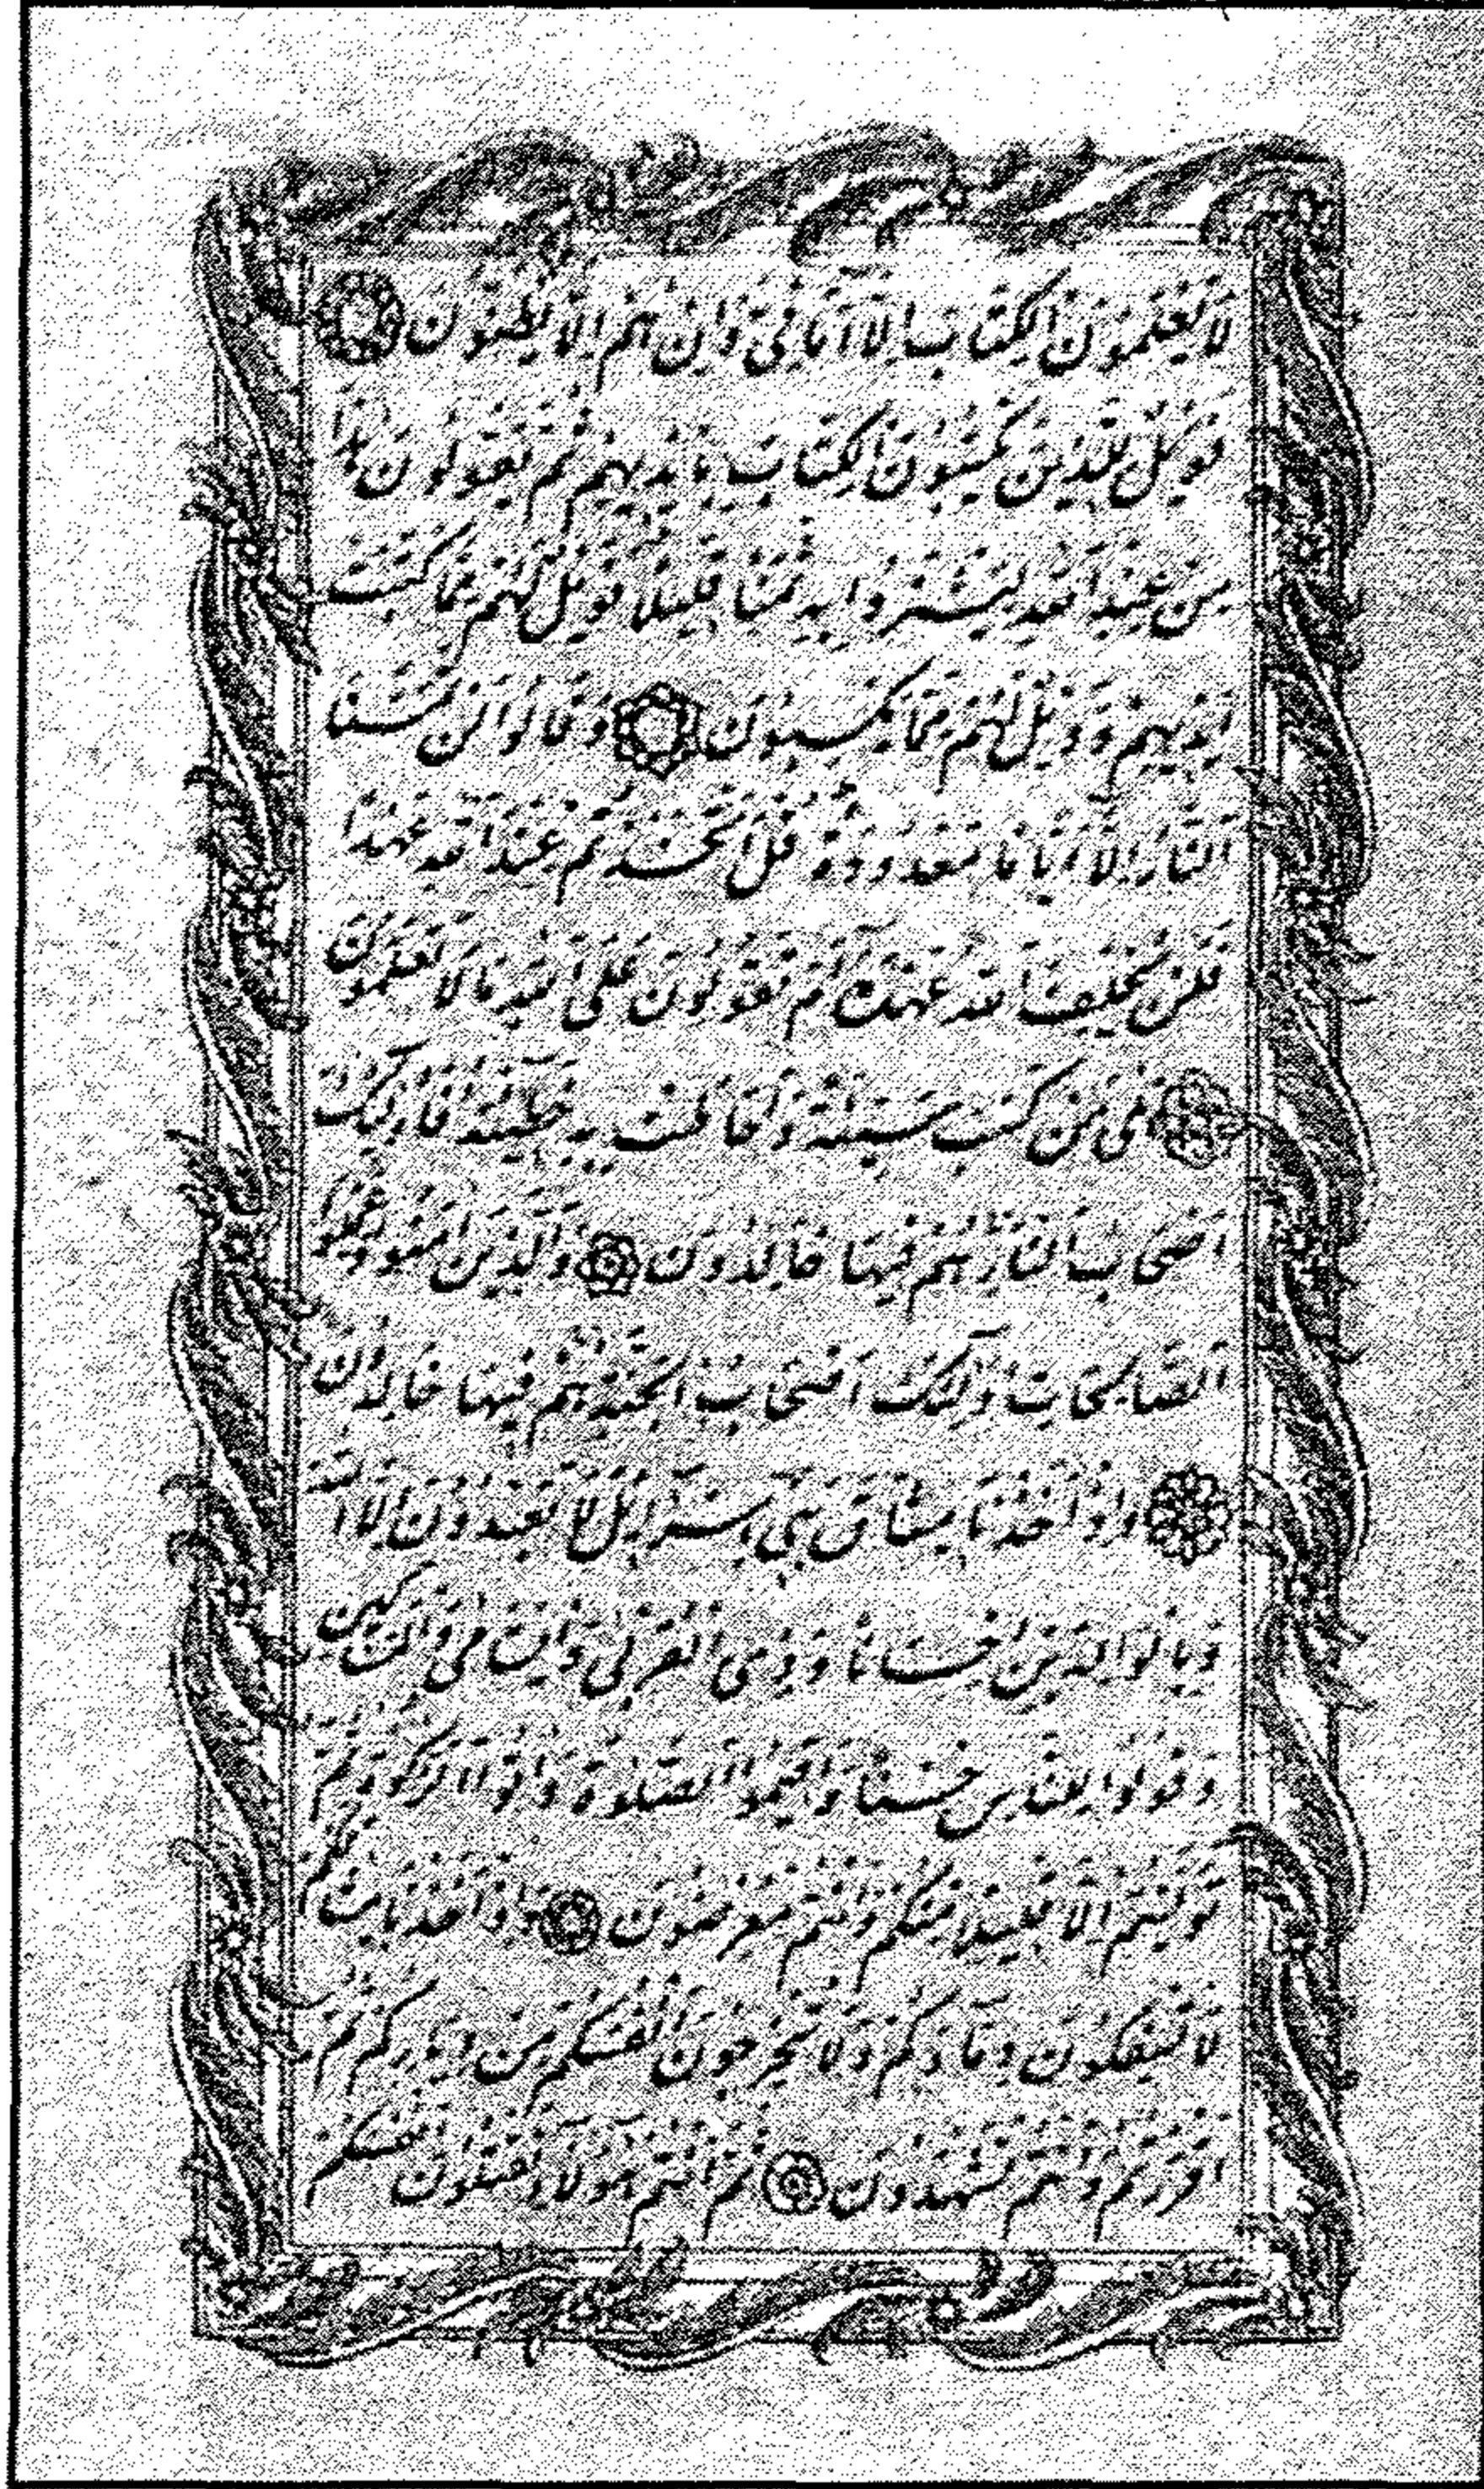 لَا يَعْلَمُونَ الْكِتَابَ إِلَّا أَمَانِيَّ وَإِنْ هُمْ إِلَّا يَظُنُّونَ
فَوَيْلٌ لِلَّذِينَ يَكْتُبُونَ الْكِتَابَ بِأَيْدِيهِمْ ثُمَّ يَقُولُونَ هٰذَا
مِنْ عِنْدِ اللّٰهِ لِيَشْتَرُوا بِهِ ثَمَنًا قَلِيلًا فَوَيْلٌ لَهُمْ مِمَّا كَتَبَتْ
أَيْدِيهِمْ وَوَيْلٌ لَهُمْ مِمَّا يَكْسِبُونَ وَقَالُوا لَنْ تَمَسَّنَا
النَّارُ إِلَّا أَيَّامًا مَعْدُودَةً قُلْ أَتَّخَذْتُمْ عِنْدَ اللّٰهِ عَهْدًا
فَلَنْ يُخْلِفَ اللّٰهُ عَهْدَهُ أَمْ تَقُولُونَ عَلَى اللّٰهِ مَا لَا تَعْلَمُونَ
بَلَى مَنْ كَسَبَ سَيِّئَةً وَأَحَاطَتْ بِهِ خَطِيئَتُهُ فَأُولٰئِكَ
أَصْحَابُ النَّارِ هُمْ فِيهَا خَالِدُونَ وَالَّذِينَ آمَنُوا وَعَمِلُوا
الصَّالِحَاتِ أُولٰئِكَ أَصْحَابُ الْجَنَّةِ هُمْ فِيهَا خَالِدُونَ
وَإِذْ أَخَذْنَا مِيثَاقَ بَنِي إِسْرَائِلَ لَا تَعْبُدُونَ إِلَّا اللّٰهَ
وَبِالْوَالِدَيْنِ إِحْسَانًا وَذِي الْقُرْبَى وَالْيَتَامَى وَالْمَسَاكِينِ
وَقُولُوا لِلنَّاسِ حُسْنًا وَأَقِيمُوا الصَّلٰوةَ وَآتُوا الزَّكٰوةَ ثُمَّ
تَوَلَّيْتُمْ إِلَّا قَلِيلًا مِنْكُمْ وَأَنْتُمْ مُعْرِضُونَ وَإِذْ أَخَذْنَا مِيثَاقَكُمْ
لَا تَسْفِكُونَ دِمَاءَكُمْ وَلَا تُخْرِجُونَ أَنْفُسَكُمْ مِنْ دِيَارِكُمْ ثُمَّ
أَقْرَرْتُمْ وَأَنْتُمْ تَشْهَدُونَ ثُمَّ أَنْتُمْ هٰؤُلَاءِ تَقْتُلُونَ أَنْفُسَكُمْ